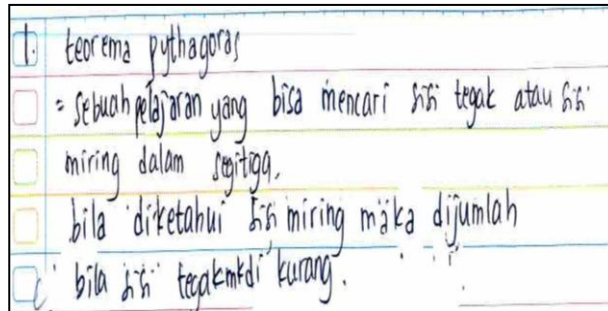 1. teorema pythagoras
= sebuah pelajaran yang bisa mencari sisi tegak atau sisi
miring dalam segitiga,
bila diketahui sisi miring maka dijumlah
bila sisi tegak mk di kurang.